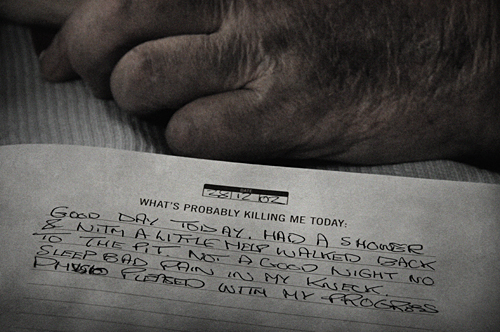 DATE
28 12 07
WHAT'S PROBABLY KILLING ME TODAY:
GOOD DAY TODAY. HAD A SHOWER
& WITH A LITTLE HELP WALKED BACK
TO THE PIT. NOT A GOOD NIGHT NO
SLEEP BAD PAIN IN MY KNECK.
PHYSIO PLEASED WITH MY PROGRESS